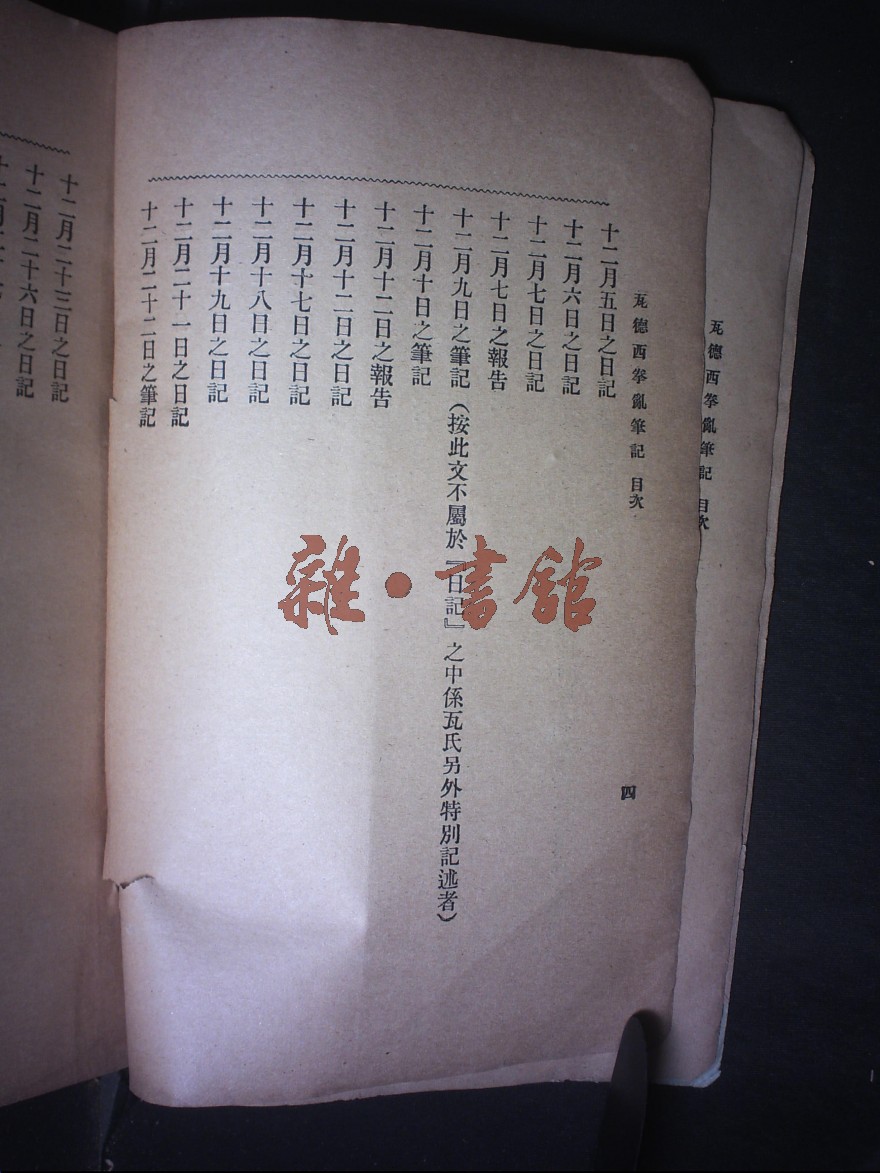 瓦德西拳亂筆記 目次
瓦德西拳亂筆記 目次
四
十二月五日之日記
十二月六日之日記
十二月七日之日記
十二月七日之報告
十二月九日之筆記(按此文不屬於『日記』之中係瓦氏另外特別記述者)
十二月十日之筆記
十二月十二日之報告
十二月十二日之日記
十二月十七日之日記
十二月十八日之日記
十二月十九日之日記
十二月二十一日之日記
十二月二十二日之筆記
十二月二十三日之日記
十二月二十六日之日記
雜·書館